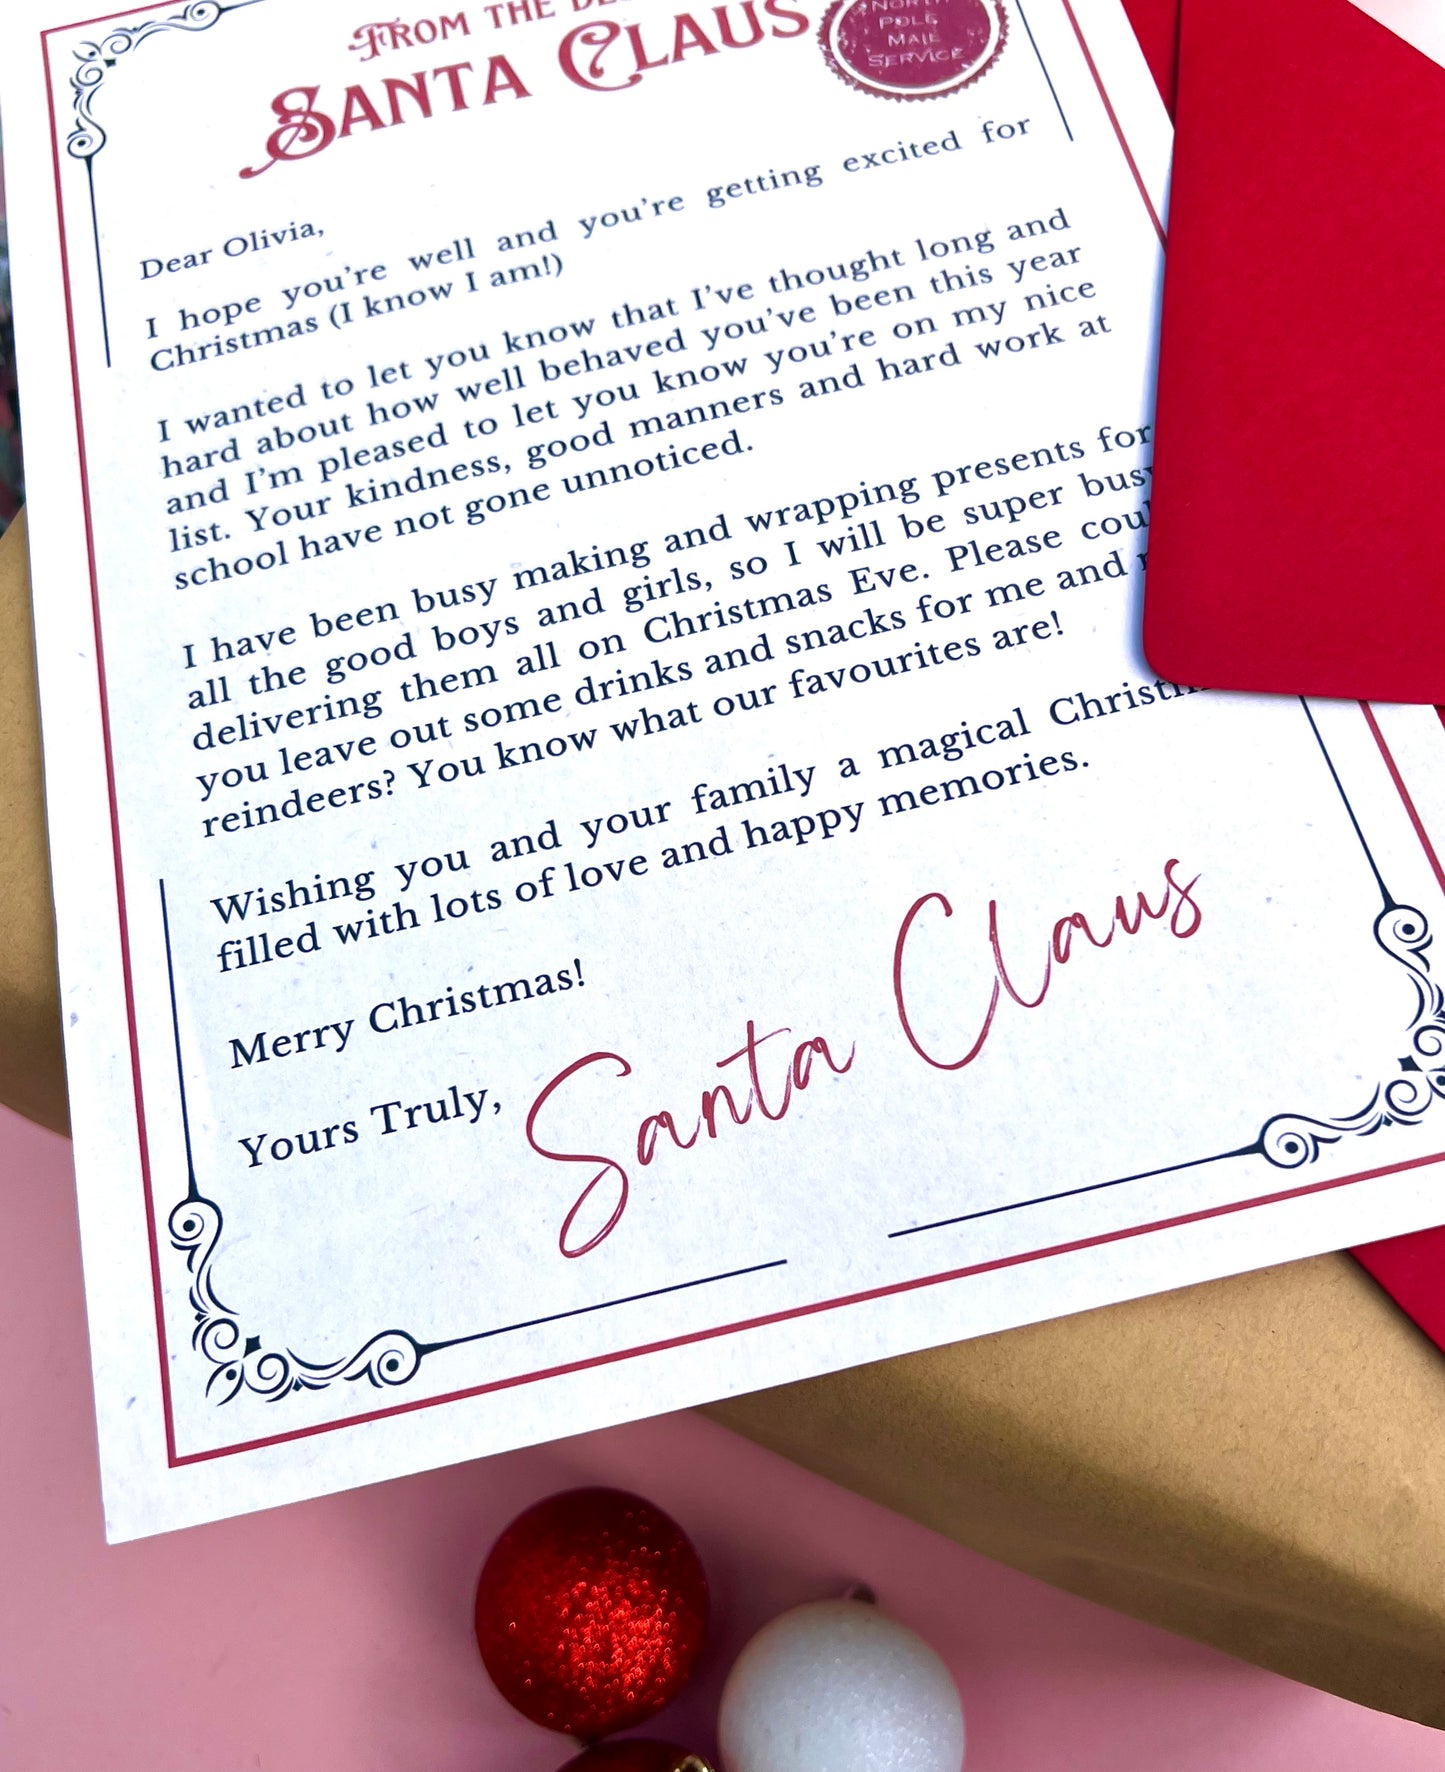 FROM THE
SANTA CLAUS
NORTH
POLE
MAIL
SERVICE
Dear Olivia,
I hope you're well and you're getting excited for
Christmas (I know I am!)
I wanted to let you know that I've thought long and
hard about how well behaved you've been this year
and I'm pleased to let you know you're on my nice
list. Your kindness, good manners and hard work at
school have not gone unnoticed.
I have been busy making and wrapping presents for
all the good boys and girls, so I will be super busy
delivering them all on Christmas Eve. Please could
you leave out some drinks and snacks for me and
reindeers? You know what our favourites are!
Wishing you and your family a magical Christmas
filled with lots of love and happy memories.
Merry Christmas!
Yours Truly,
Santa Claus